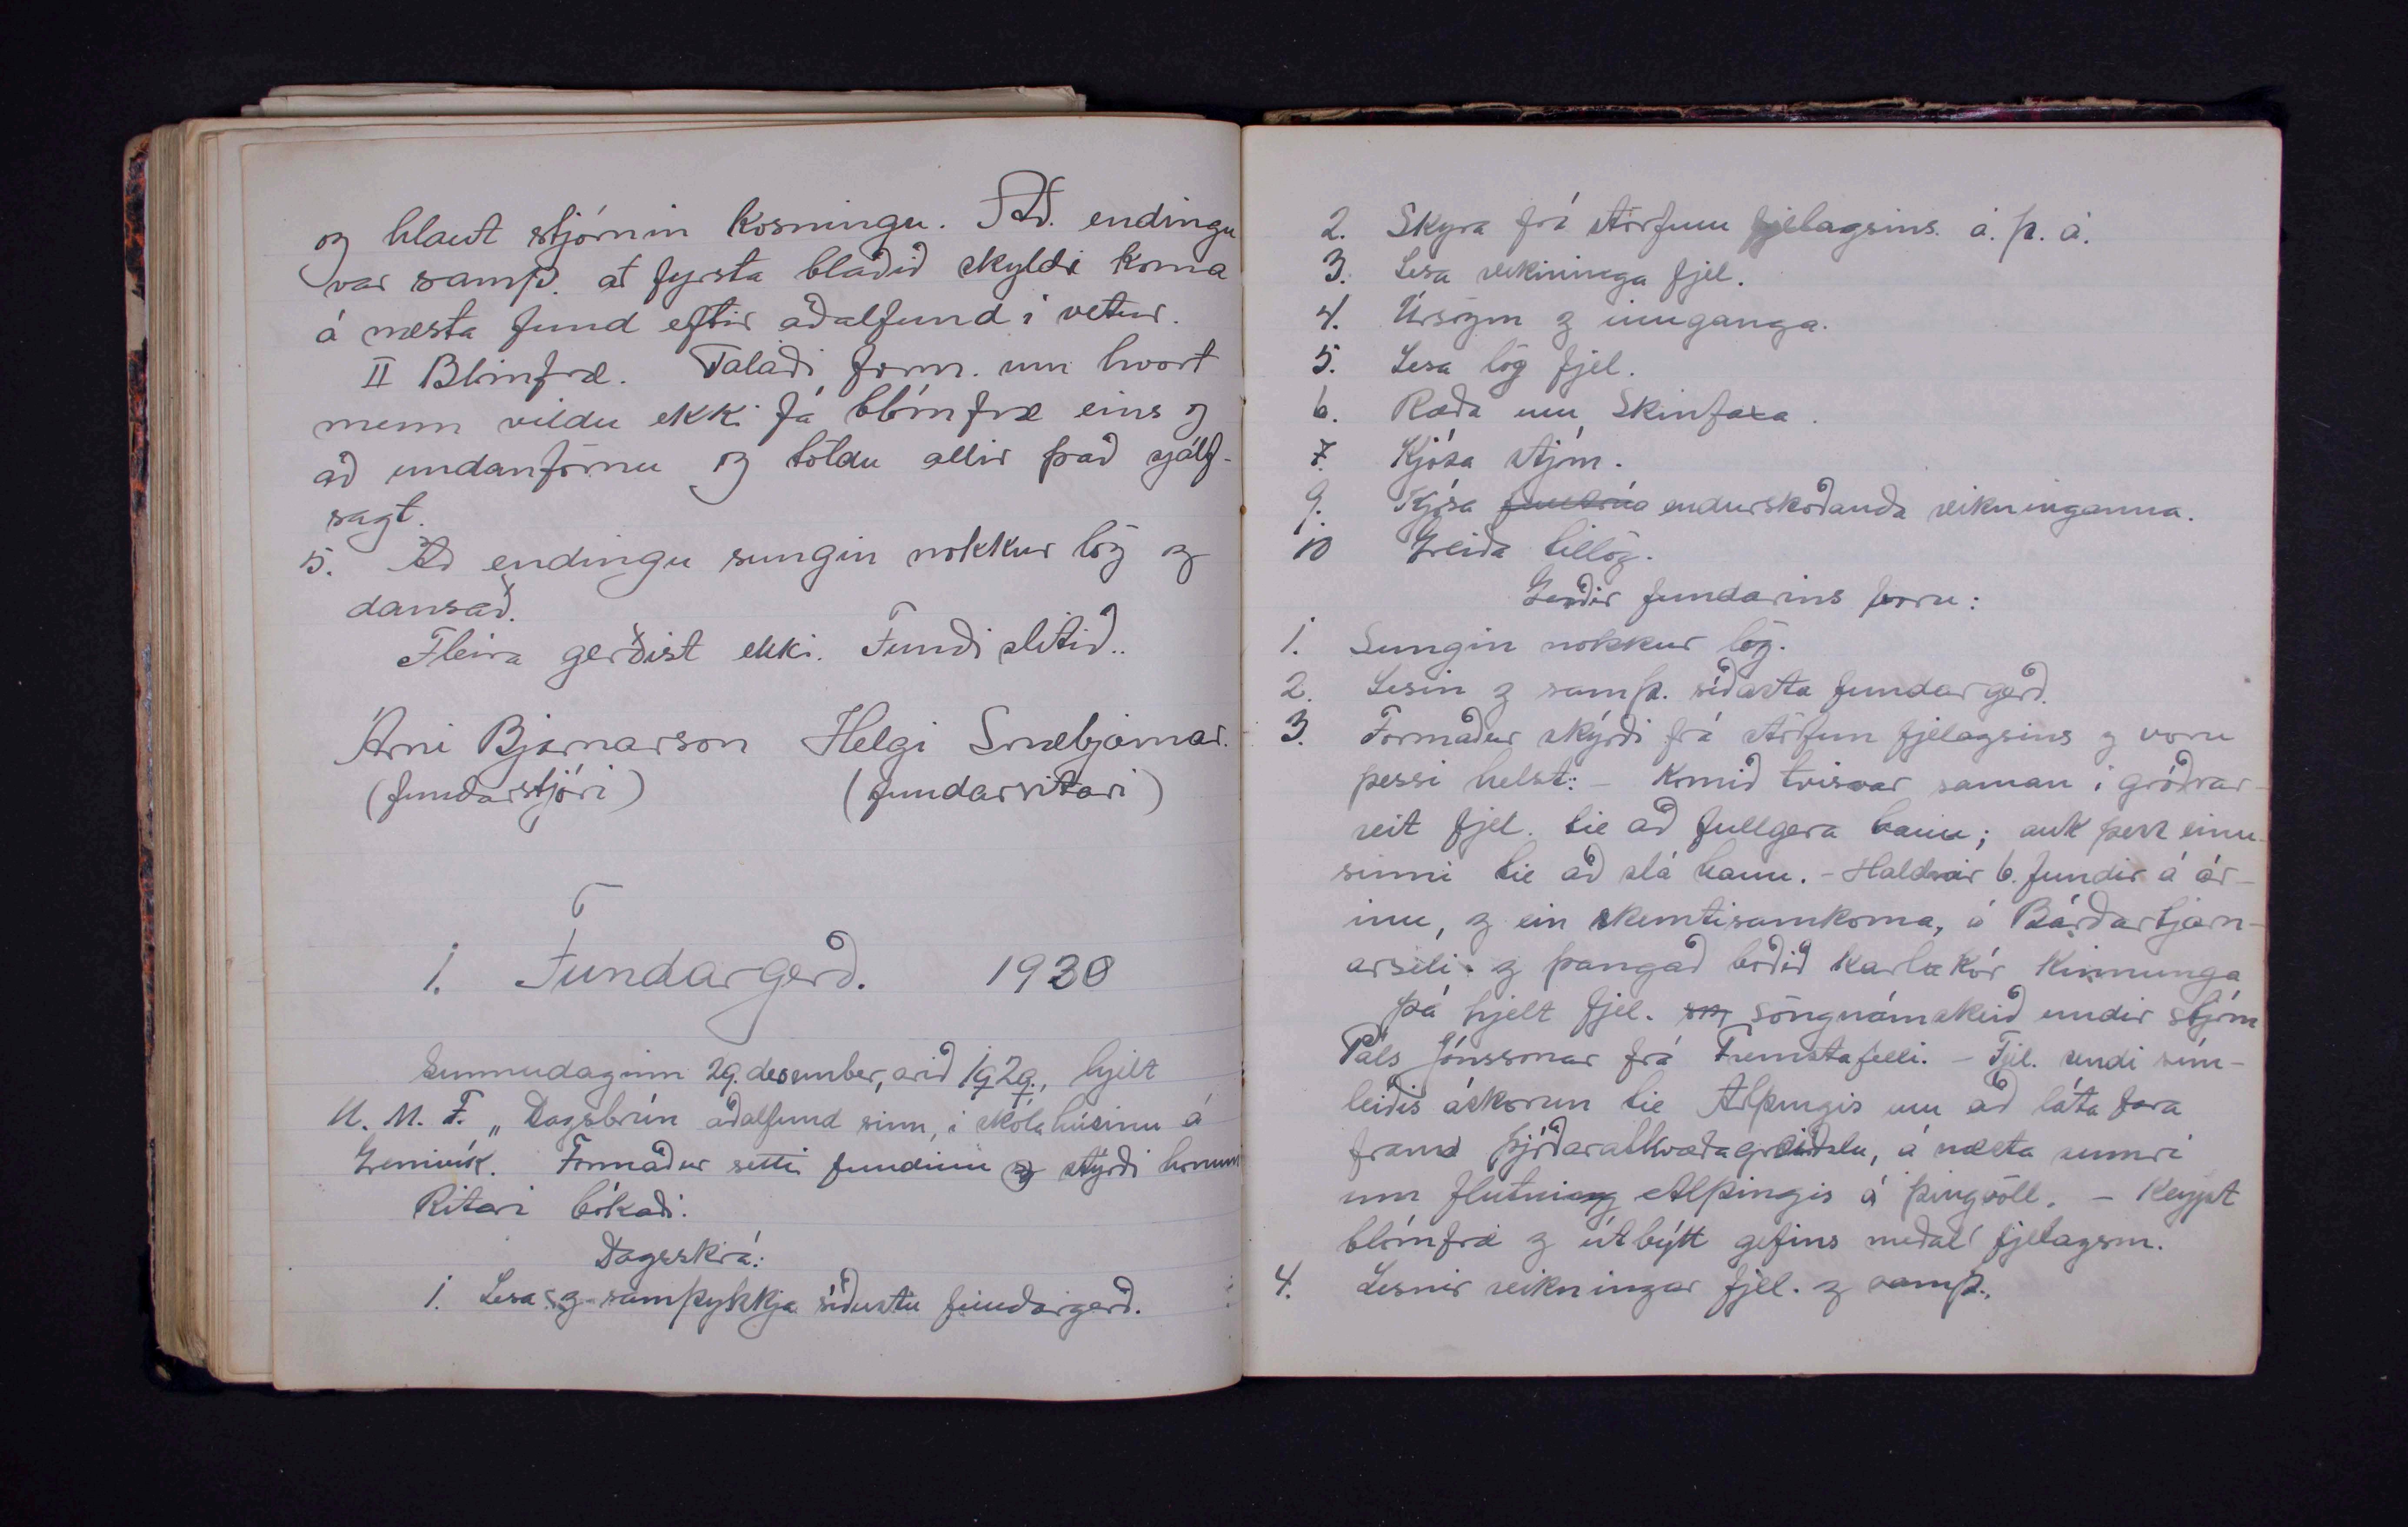 og hlaut stjórnin kosningu. Að endingu
var samþ. at fyrsta blaðið skyldi koma
á næsta fund eftir aðalfund í vetur.
II Blómfræ. Talaði form. um hvort
menn vildu ekki fá blómfræ eins og
að undanförnu og töldu allir það sjálf-
sagt.
5. Að endingu sungin nokkur lög og
dansað.
Fleira gerðist ekki. Fundi slitið..
Árni Bjarnarson Helgi Snæbjarnar.
(fundarstjóri) (fundarritari)
1. Fundargerð. 1930
Sunnudaginn 29. desember, árið 1929., hjelt
U. M. F. „Dagsbrún aðalfund sinn, í skólahúsinu á
Grenivík. Formaður setti fundinn og stýrði honum
Ritari bókaði.
Dagsskrá:
1. Lesa og samþykkja síðustu fundargerð.
2. Skýra frá störfum fjelagsins á. þ. á.
3. Lesa reikninga fjel.
4. Úrsögn og innganga.
5. Lesa lög fjel.
6. Ræða um Skinfaxa.
7. Kjósa stjórn.
9. Kjósa endurskoðanda reikninganna.
10 Greiða tillög.
Gerðir fundarins voru:
1. Sungin nokkur lög.
2. Lesin og samþ. síðasta fundargerð.
3. Formaður skýrði frá störfum fjelagsins og voru
þessi helst: - Komið tvisvar saman í gróðrar-
reit fjel. til að fullgera hann; auk þess einu-
sinni til að slá hann. - Haldnir 6. fundir á ár-
inu, og ein skemtisamkoma, á Bárðartjarn-
arseli. og þangað boðið karlakór Kinnunga
þá hjelt fjel. söngnámskeið undir stjórn
Páls Jónssonar frá Fremstafelli. - Fjel. sendi sím-
leiðis áskorun til Alþingis um að láta fara
fram þjóðaratkvæðagreiðslu, á næsta sumri
um flutning Alþingis á þingvöll. - Keypt
blómfræ og útbýtt gefins meðal fjelagsm.
4. Lesnir reikningar fjel. og samþ.